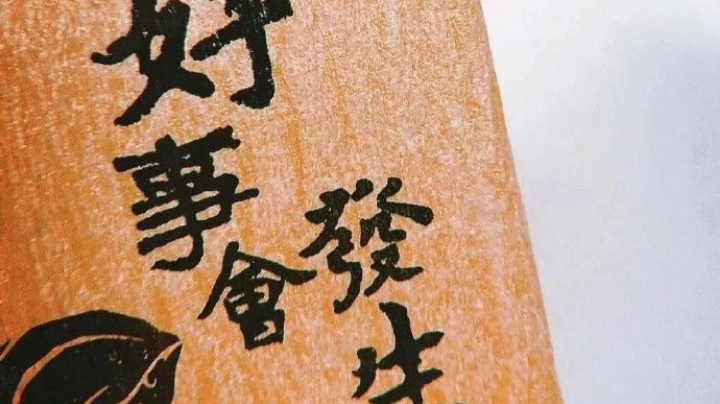 好事會發生